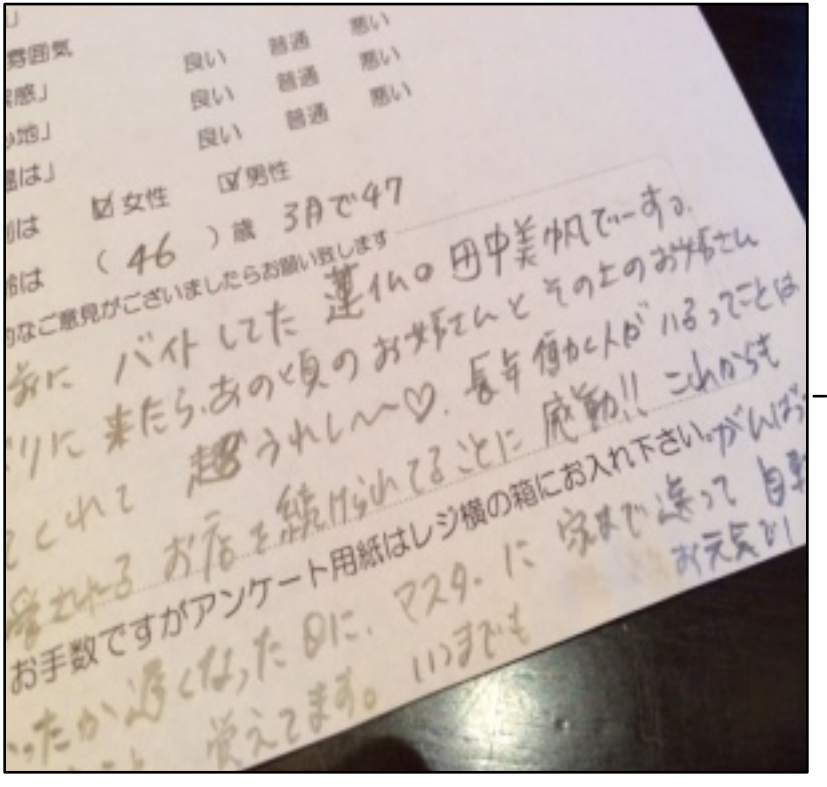 雰囲気 良い 普通 悪い
感」 良い 普通 悪い
地」 良い 普通 悪い
は」
は ☑女性 ☑男性
齢は (46)歳 3月で47
的なご意見がございましたらお願い致します
前に バイトしてた 蓮仏の田中美帆でーす。
リに来たら、あの頃のお姉さんとその上のお姉さん
てくれて 超うれし〜〜♡. 長年働く人がいるってことは
愛される お店を続けられてることに感動!! これからも
お手数ですがアンケート用紙はレジ横の箱にお入れ下さい。がんばっ
ったか遅くなった日に、マスターに家まで送って 自転
覚えてます。 いつまでも お元気で!